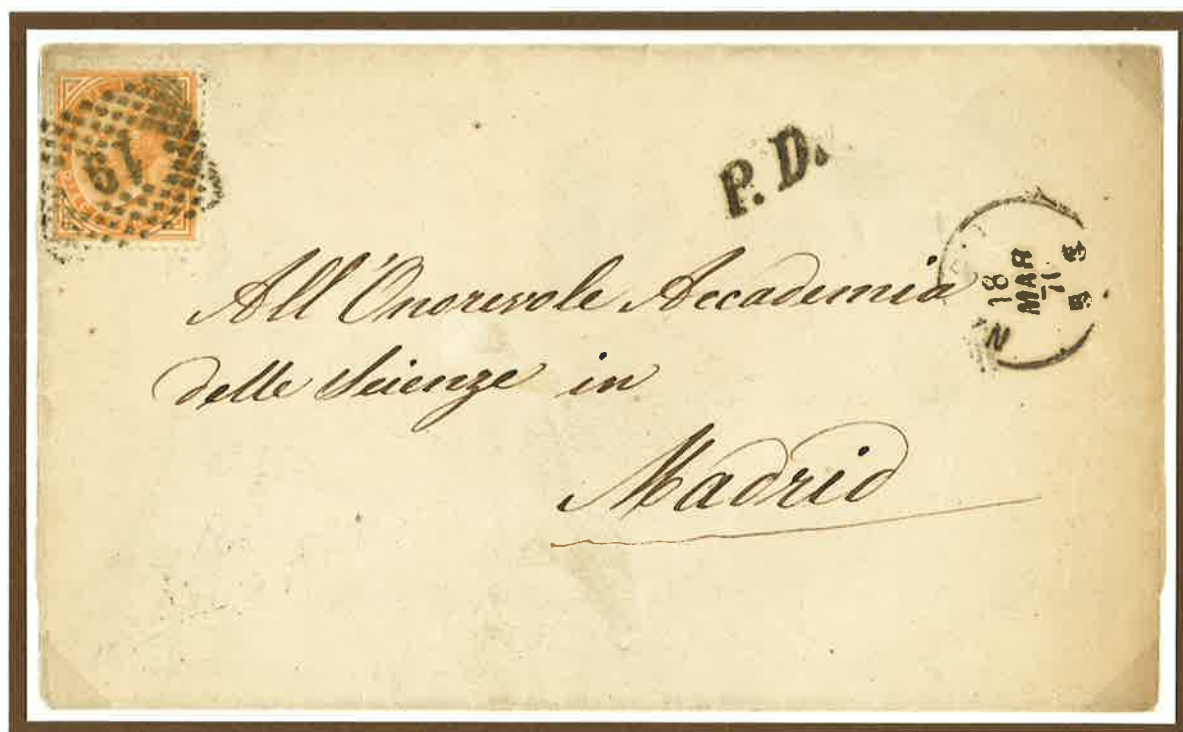 P. D.
18
MAR
71
All'Onorevole Accademia
delle Scienze in
Madrid